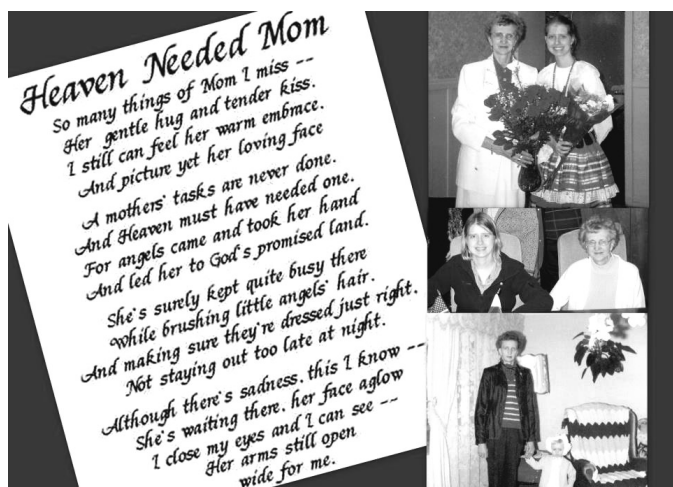 Heaven Needed Mom
So many things of Mom I miss --
Her gentle hug and tender kiss.
I still can feel her warm embrace.
And picture yet her loving face
A mothers' tasks are never done.
And Heaven must have needed one.
For angels came and took her hand
And led her to God's promised land.
She's surely kept quite busy there
While brushing little angels' hair.
And making sure they're dressed just right.
Not staying out too late at night.
Although there's sadness, this I know --
She's waiting there, her face aglow
I close my eyes and I can see --
Her arms still open
wide for me.